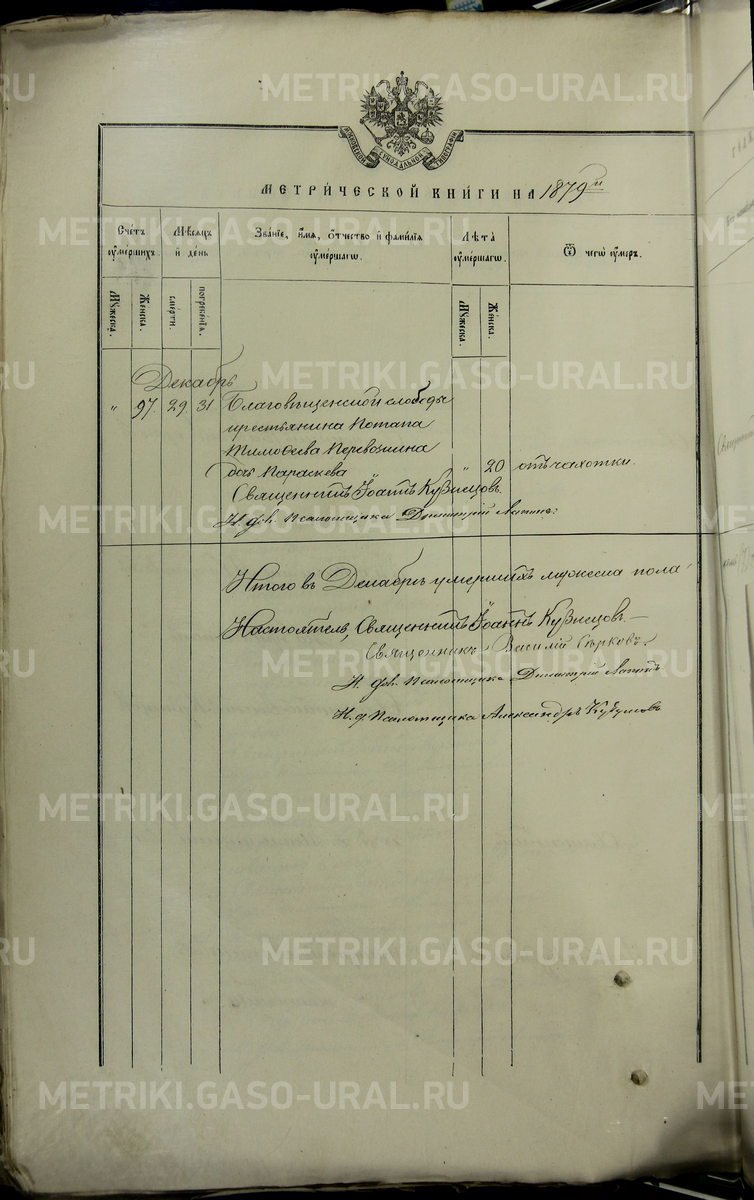 МЕТРИ́ЧЕСКОЙ КНИ́ГИ НА 1879й
Сче́тъ оуме́ршихъ.
Мѣ́сяцъ и де́нь
Зва́нїе, и́мя, о́тчество и фами́лїя оуме́ршагѡ.
Лѣ́та оуме́ршагѡ.
Ѿ чегѡ̀ оу́меръ.
Му́жеска.
Же́нска.
сме́рти.
погребе́нїя.
Му́жеска.
Же́нска.
Декабрь
" 97 29 31 Благовѣщенской слободы
крестьянина Потапа
Тимоѳеева Перевозкина
дочь Параскева " 20 отъ чахотки.
Священникъ Іоаннъ Кузнецовъ.
И. дол. Псаломщика Димитрій
Итого въ Декабрѣ умершихъ мужеска пола
Настоятель, Священникъ Іоаннъ Кузнецовъ.
Священникъ Василій Сѣрковъ.
И. дол. Псаломщика Димитрій
И. д. Псаломщика Александръ
METRIKI.GASO-URAL.RU